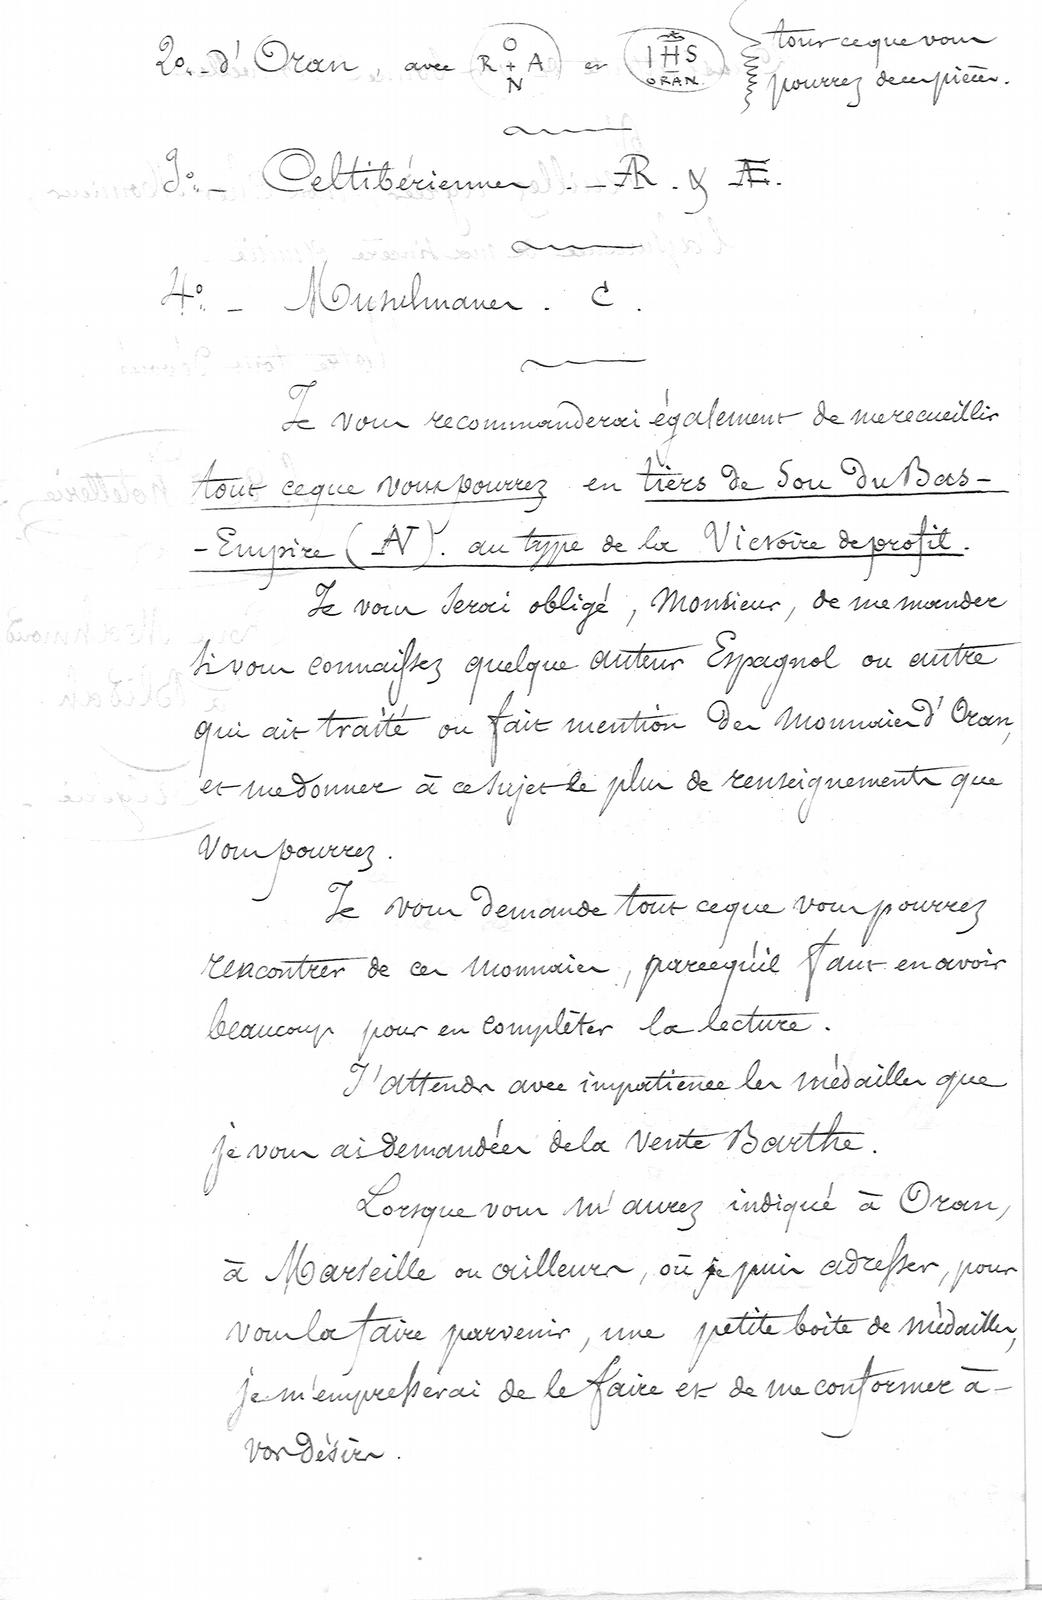 2o.- d'Oran, avec O R + A N et IHS ORAN. tout ceque vous
pourrez de ces pièces.
3o.- Celtibériennes. - AR. & Æ.
4o.- Musulmanes. C.
Je vous recommanderai également de me recueillir
tout ceque vous pourrez en tiers de Sou du Bas-
-Empire (AV). au type de la Victoire de profil.
Je vous serai obligé, Monsieur, de me mander
si vous connaissez quelque auteur Espagnol ou autre
qui ait traité ou fait mention des Monnaies d'Oran,
et me donner à ce sujet le plus de renseignements que
vous pourrez.
Je vous demande tout ceque vous pourrez
rencontrer de ces Monnaies, parcequ'il faut en avoir
beaucoup pour en complèter la lecture.
J'attends avec impatience les médailles que
je vous ai demandées de la Vente Barthe.
Lorsque vous m'aurez indiqué à Oran,
à Marseille ou ailleurs, où je puis adresser, pour
vous la faire parvenir, une petite boite de médailles,
je m'empresserai de le faire et de me conformer à-
vos désirs.